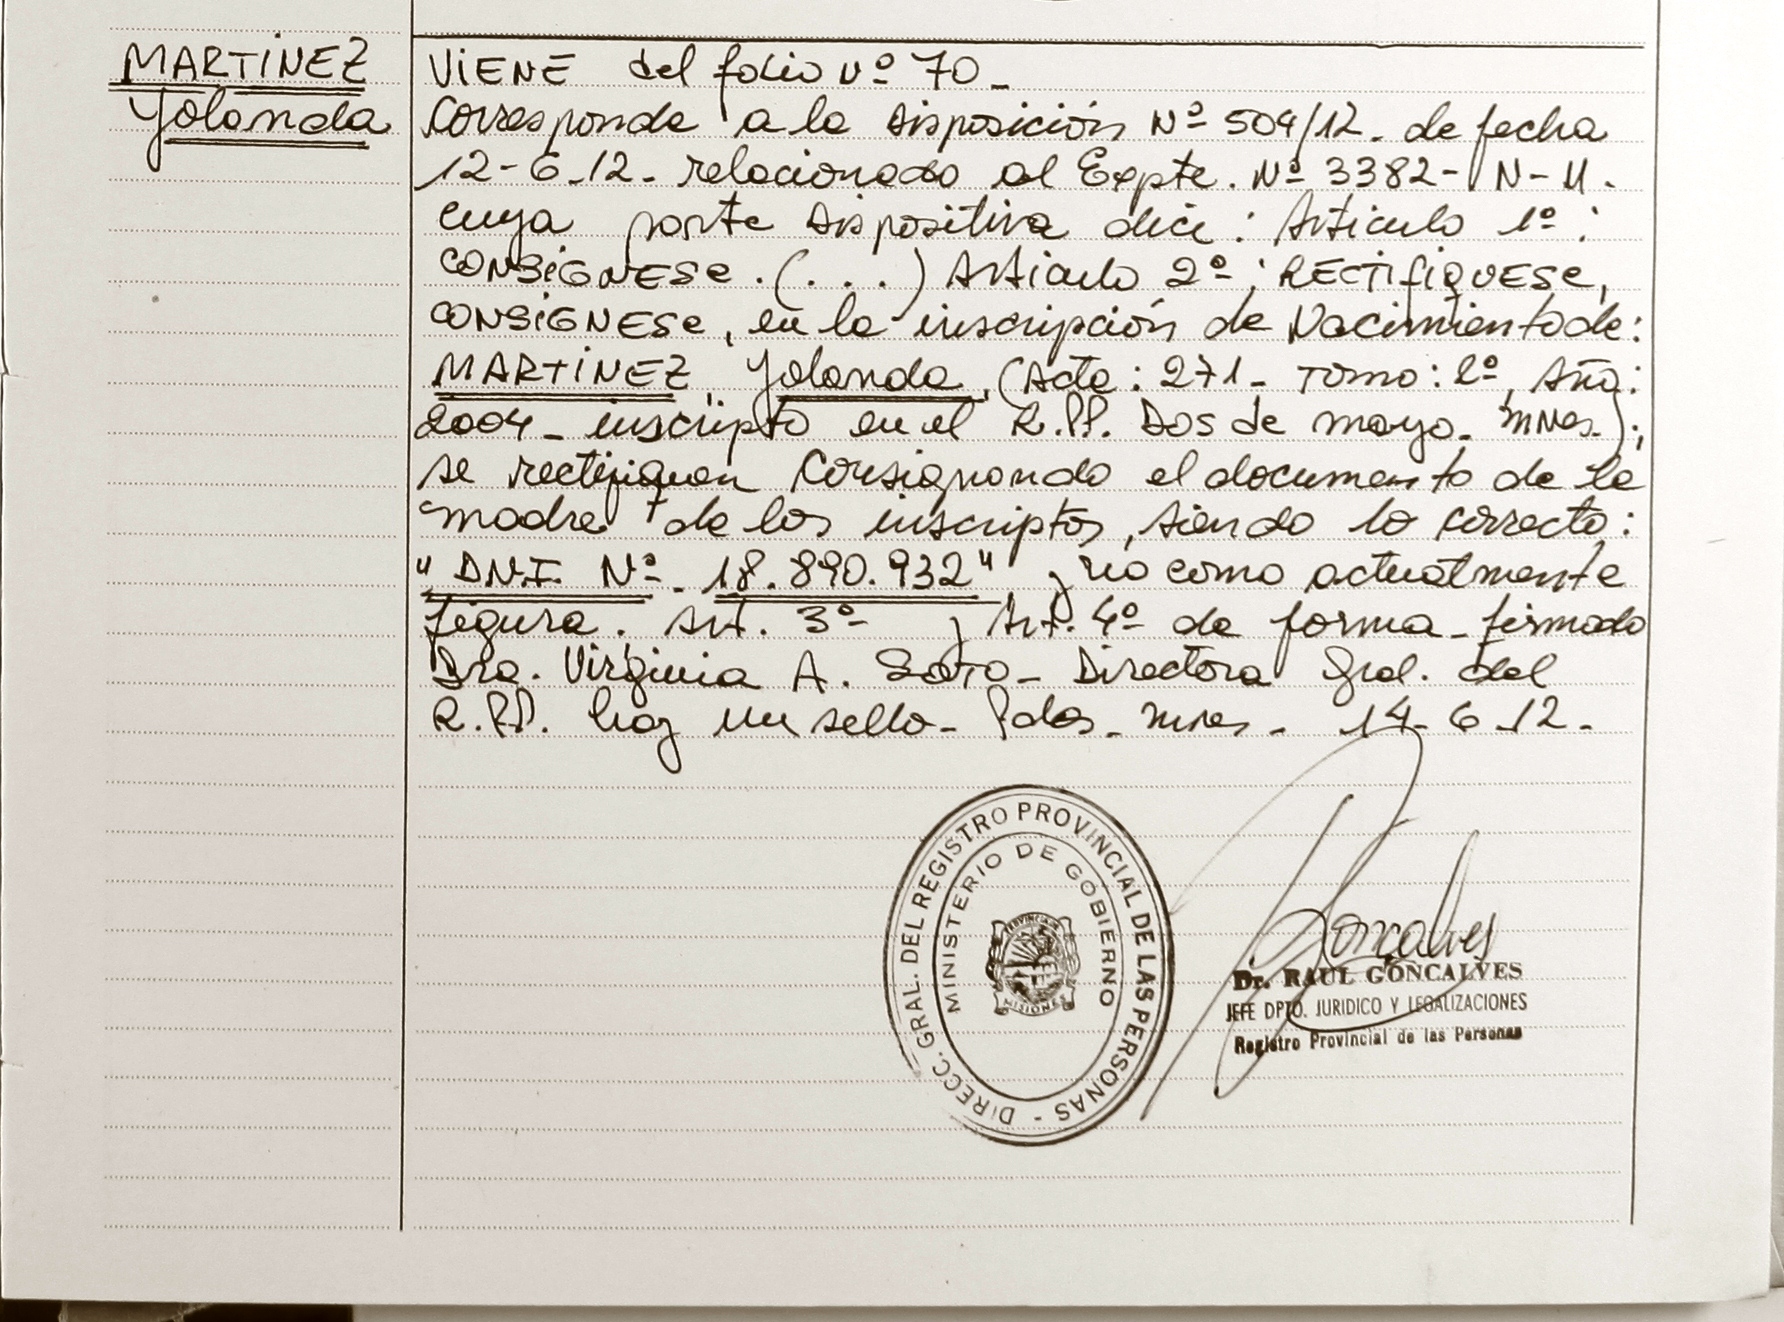 MARTINEZ
Yolanda
VIENE del folio Nº 70_
Corresponde a la Disposición Nº 509/12. de fecha
12-6.12. relacionado al Expte. Nº 3382- N-11.
cuya parte Dispositiva dice: Articulo 1º:
CONSIGNESE. (...) Articulo 2º: RECTIFIQUESE,
CONSIGNESE, en la inscripción de Nacimiento de:
MARTINEZ, Yolanda, (Acta: 271- Tomo: 2º, Año:
2004- inscripto en el R.PP. Dos de mayo. mnes.);
se rectifiquen Consignando el documento de la
madre de los inscriptos, siendo lo correcto:
"DNI. Nº. 18.890.932" y no como actualmente
figura. Art. 3º y Art. 4º de forma_ firmado
Dra. Virginia A. Soto_ Directora Gral. del
R.PP. hay un sello_ Pdas. mnes. 14-6.12.
DIRECC. GRAL. DEL REGISTRO PROVINCIAL DE LAS PERSONAS -
MINISTERIO DE GOBIERNO
PROVINCIA DE
MISIONES
Goncalves
Dr. RAUL GONCALVES
JEFE DPTO. JURIDICO Y LEGALIZACIONES
Registro Provincial de las Personas